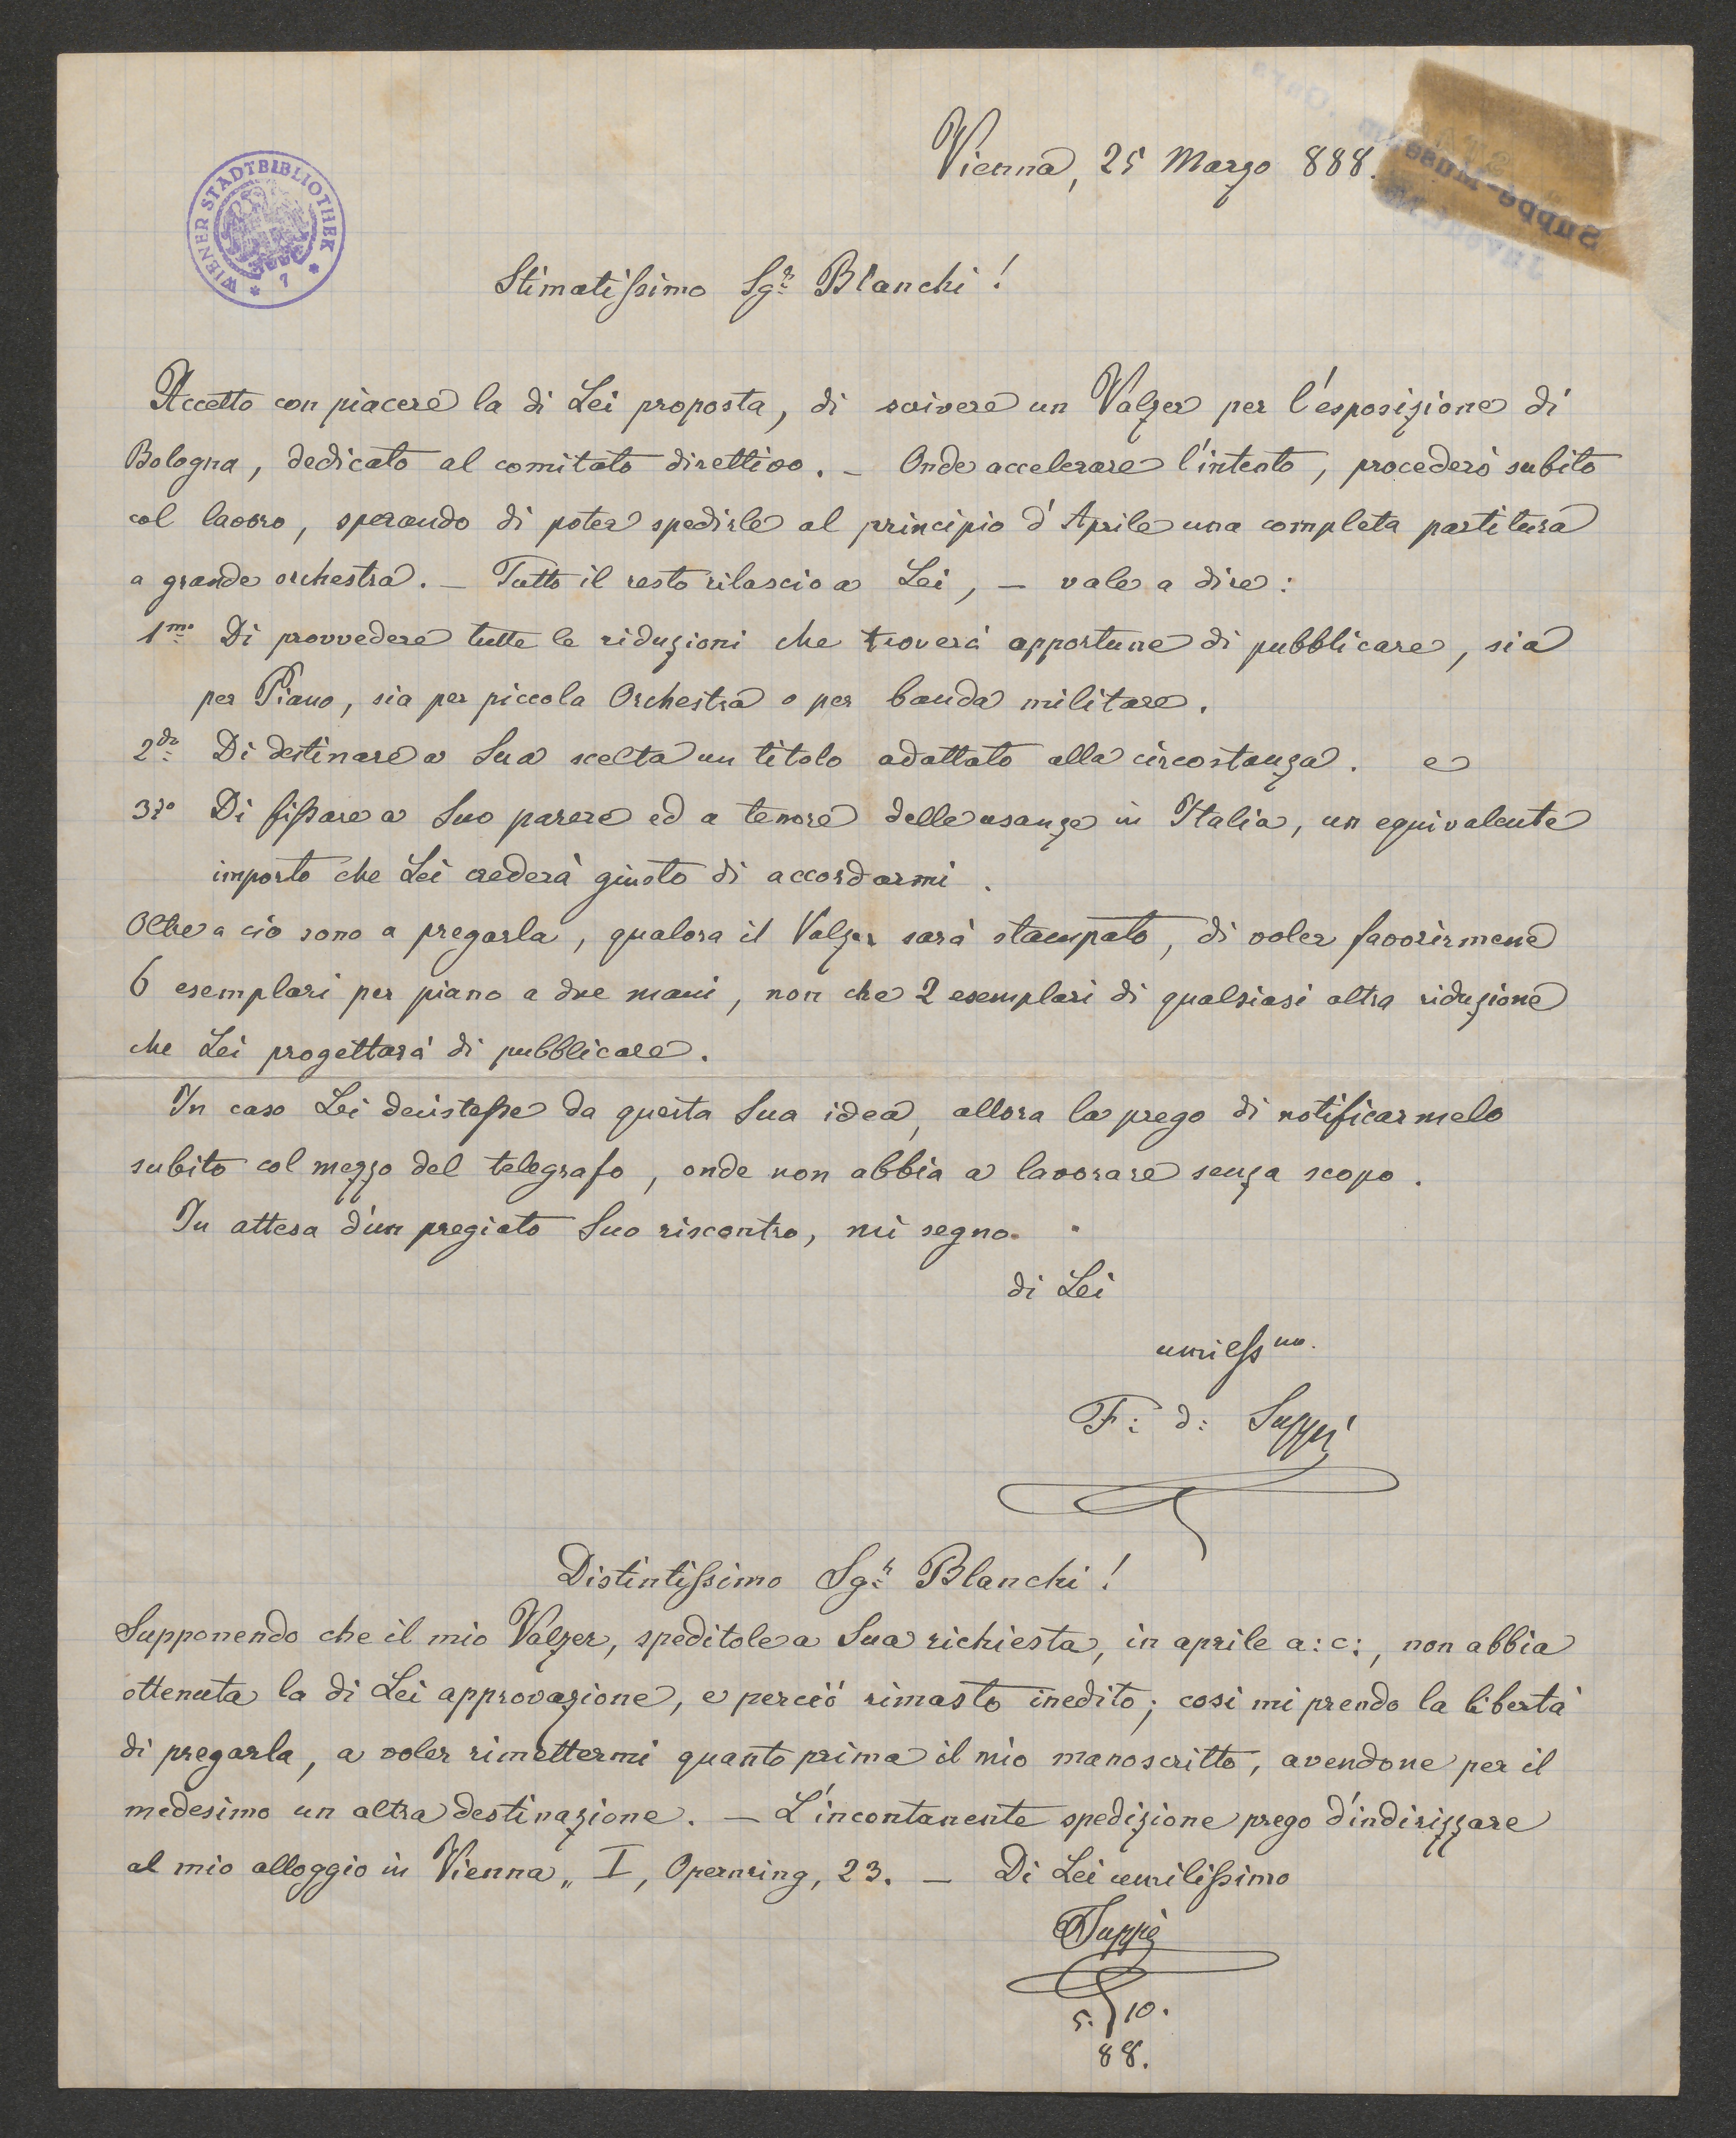 Vienna, 25 Marzo 888.
WIENER STADTBIBLIOTHEK
* 7 *
Suppé-Museum
Stimatissimo Sgr. Blanchi!
Accetto con piacere la di Lei proposta, di scivere un Valzer per l'esposizione di
Bologna, dedicato al comitato direttivo. – Onde accelerare l'intento, procederò subito
col lavoro, sperando di poter spedirle al principio d'Aprile una completa partitura
a grande orchestra. – Tutto il resto rilascio a Lei, – vale a dire:
1mo Di provvedere tutte le riduzioni che troverà opportune di pubblicare, sia
per Piano, sia per piccola Orchestra o per banda militare.
2do Di destinare a Sua scelta un titolo adattato alla circostanza. e
3zo Di fissare a Suo parere ed a tenore delle usanze in Italia, un equivalente
importo che Lei crederà giusto di accordarmi.
Oltre a ciò sono a pregarla, qualora il Valzer sarà stampato, di voler favorirmene
6 esemplari per piano a due mani, non che 2 esemplari di qualsiasi altra riduzione
che Lei progettarà di pubblicare.
In caso Lei decistesse da questa Sua idea, allora la prego di notificarmelo
subito col mezzo del telegrafo, onde non abbia a lavorare senza scopo.
In attesa d'un pregiato Suo riscontro, mi segno.
di Lei
umilssmo.
F: d: Suppé
Distintissimo Sgr. Blanchi!
Supponendo che il mio Valzer, speditole a Sua richiesta, in aprile a: c:, non abbia
ottenuta la di Lei approvazione, e perciò rimasto inedito; così mi prendo la libertà
di pregarla, a voler rimettermi quanto prima il mio manoscritto, avendone per il
medesimo un altra destinazione. – L'incontanente spedizione prego d'indirizzare
al mio alloggio in Vienna „ I, Opernring, 23. – Di Lei umilissimo
Suppé
5. 10.
88.